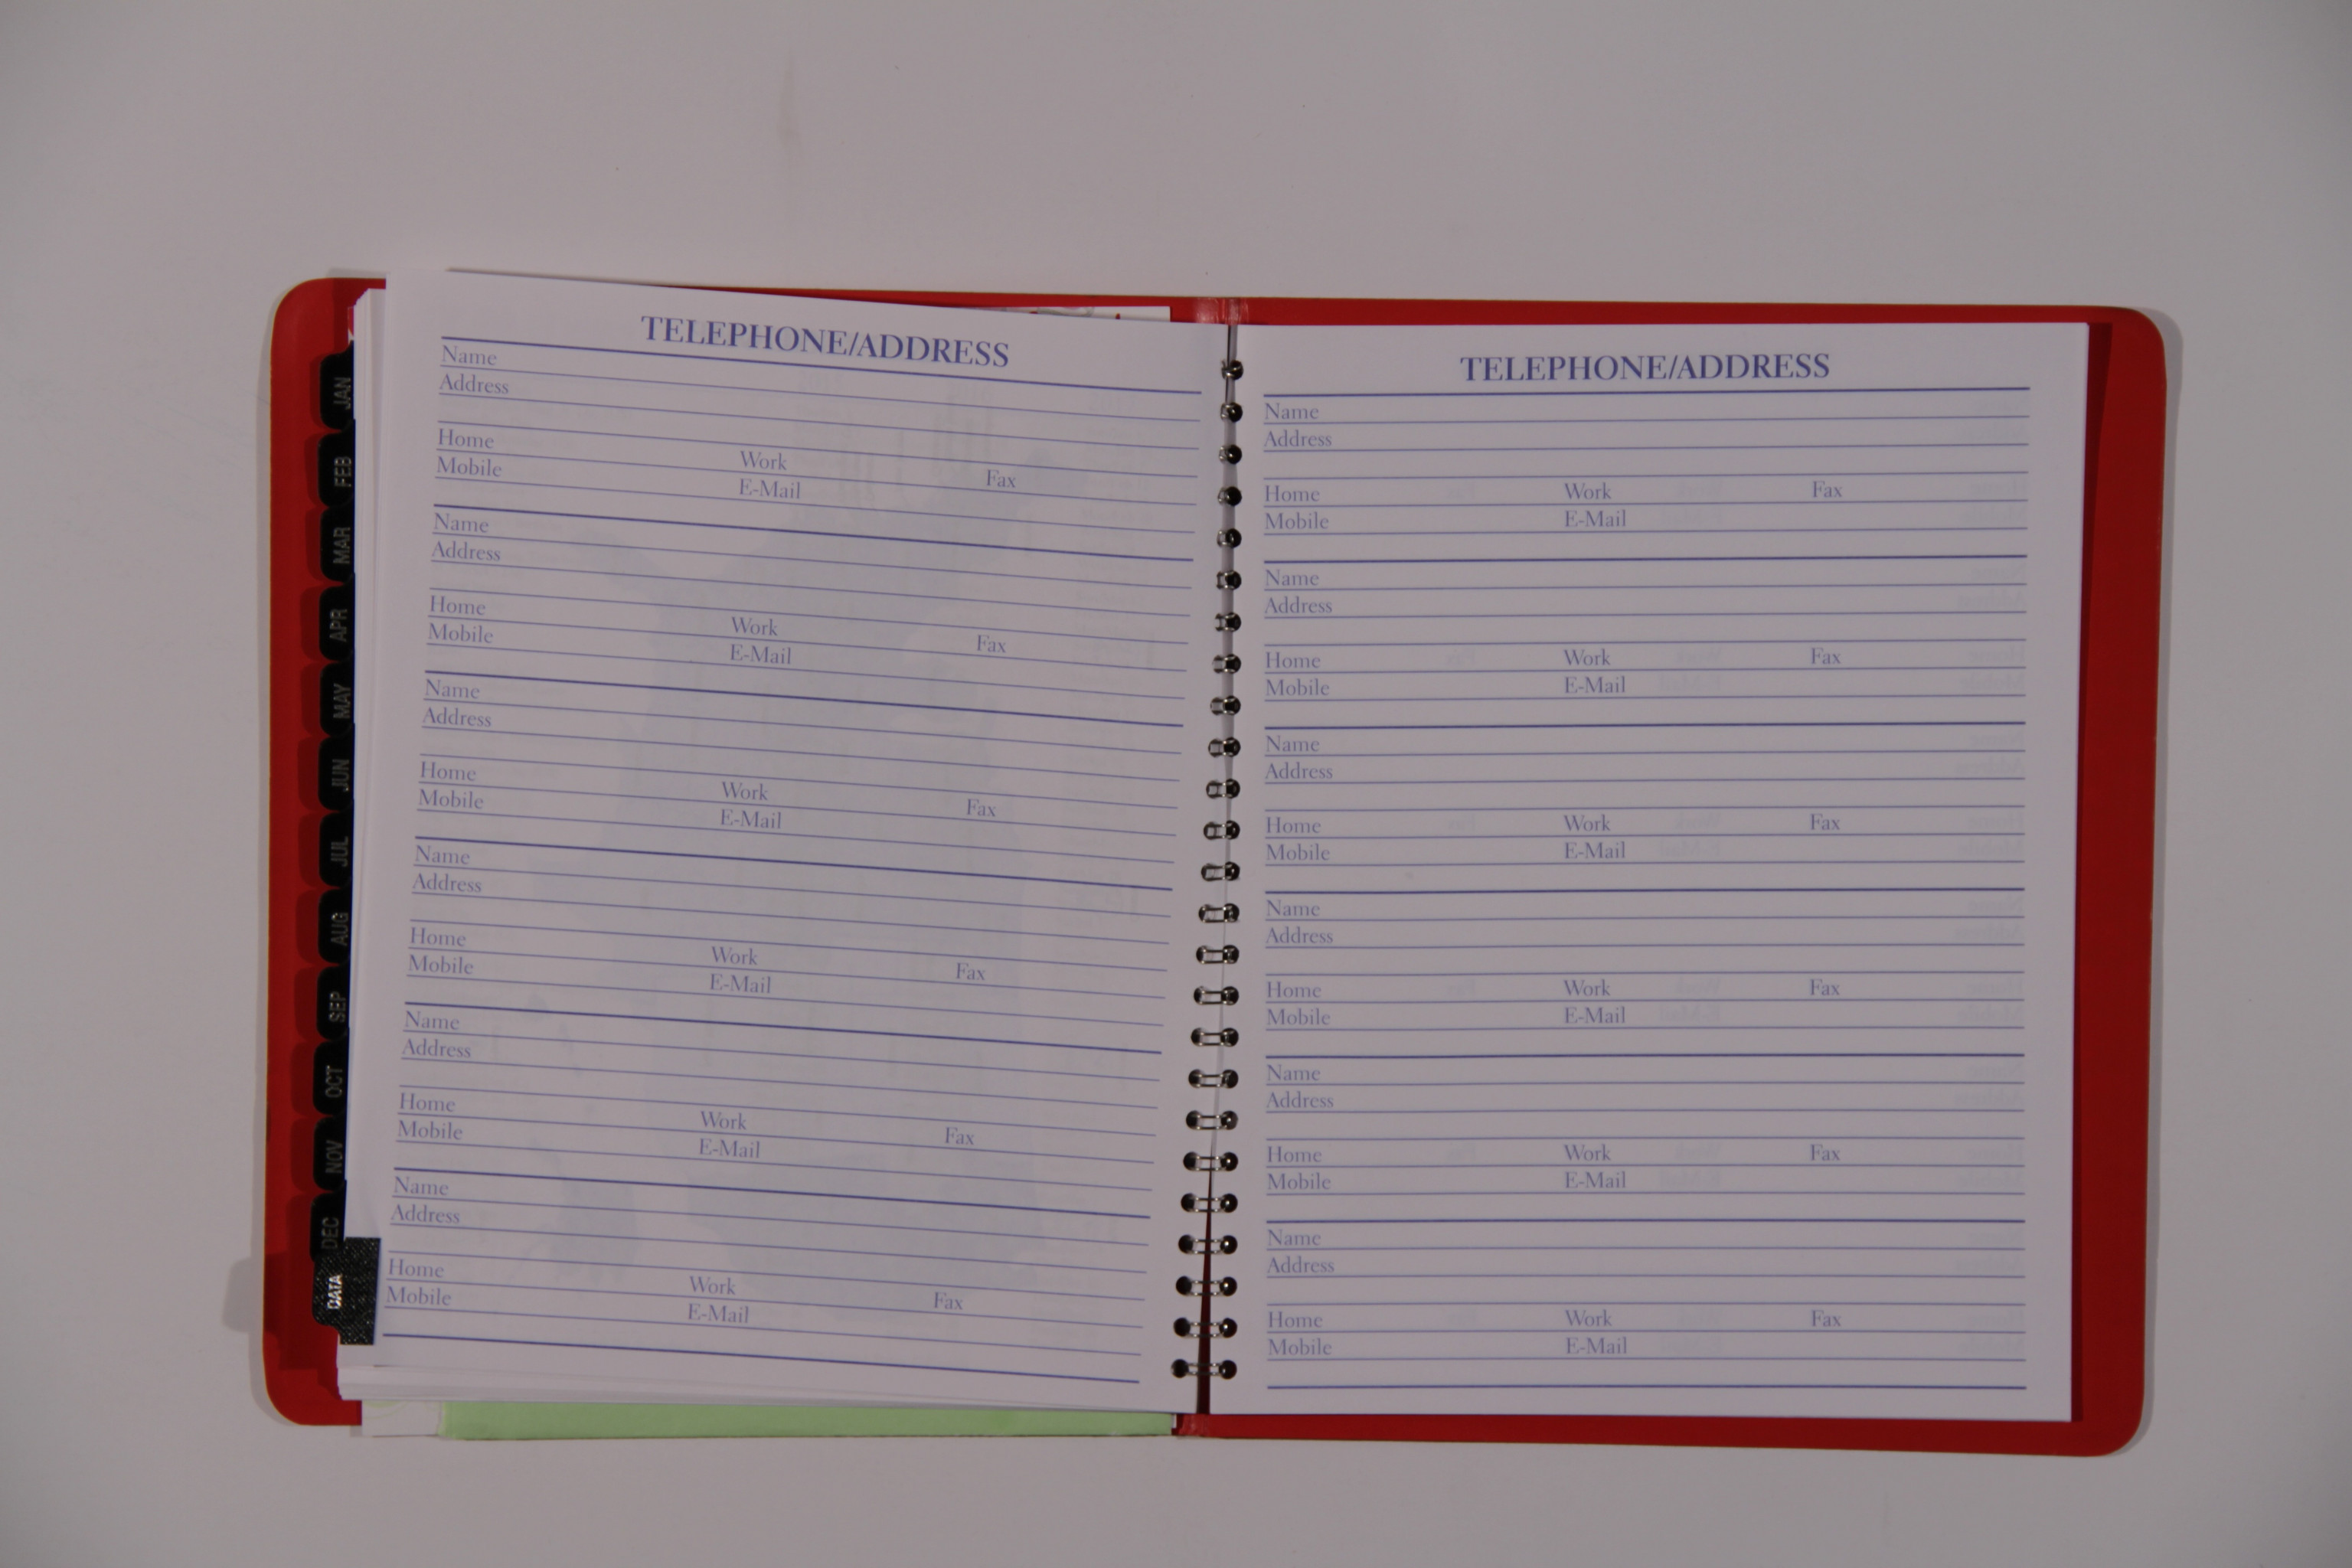 TELEPHONE/ADDRESS
Name
Address
Home Work Fax
Mobile E-Mail
Name
Address
Home Work Fax
Mobile E-Mail
Name
Address
Home Work Fax
Mobile E-Mail
Name
Address
Home Work Fax
Mobile E-Mail
Name
Address
Home Work Fax
Mobile E-Mail
Name
Address
Home Work Fax
Mobile E-Mail
TELEPHONE/ADDRESS
Name
Address
Home Work Fax
Mobile E-Mail
Name
Address
Home Work Fax
Mobile E-Mail
Name
Address
Home Work Fax
Mobile E-Mail
Name
Address
Home Work Fax
Mobile E-Mail
Name
Address
Home Work Fax
Mobile E-Mail
Name
Address
Home Work Fax
Mobile E-Mail
JAN
FEB
MAR
APR
MAY
JUN
JUL
AUG
SEP
OCT
NOV
DEC
DATA